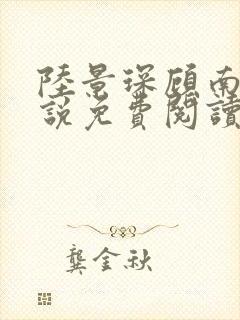 陸景琛顧南
說免費閱讀
龔金秋